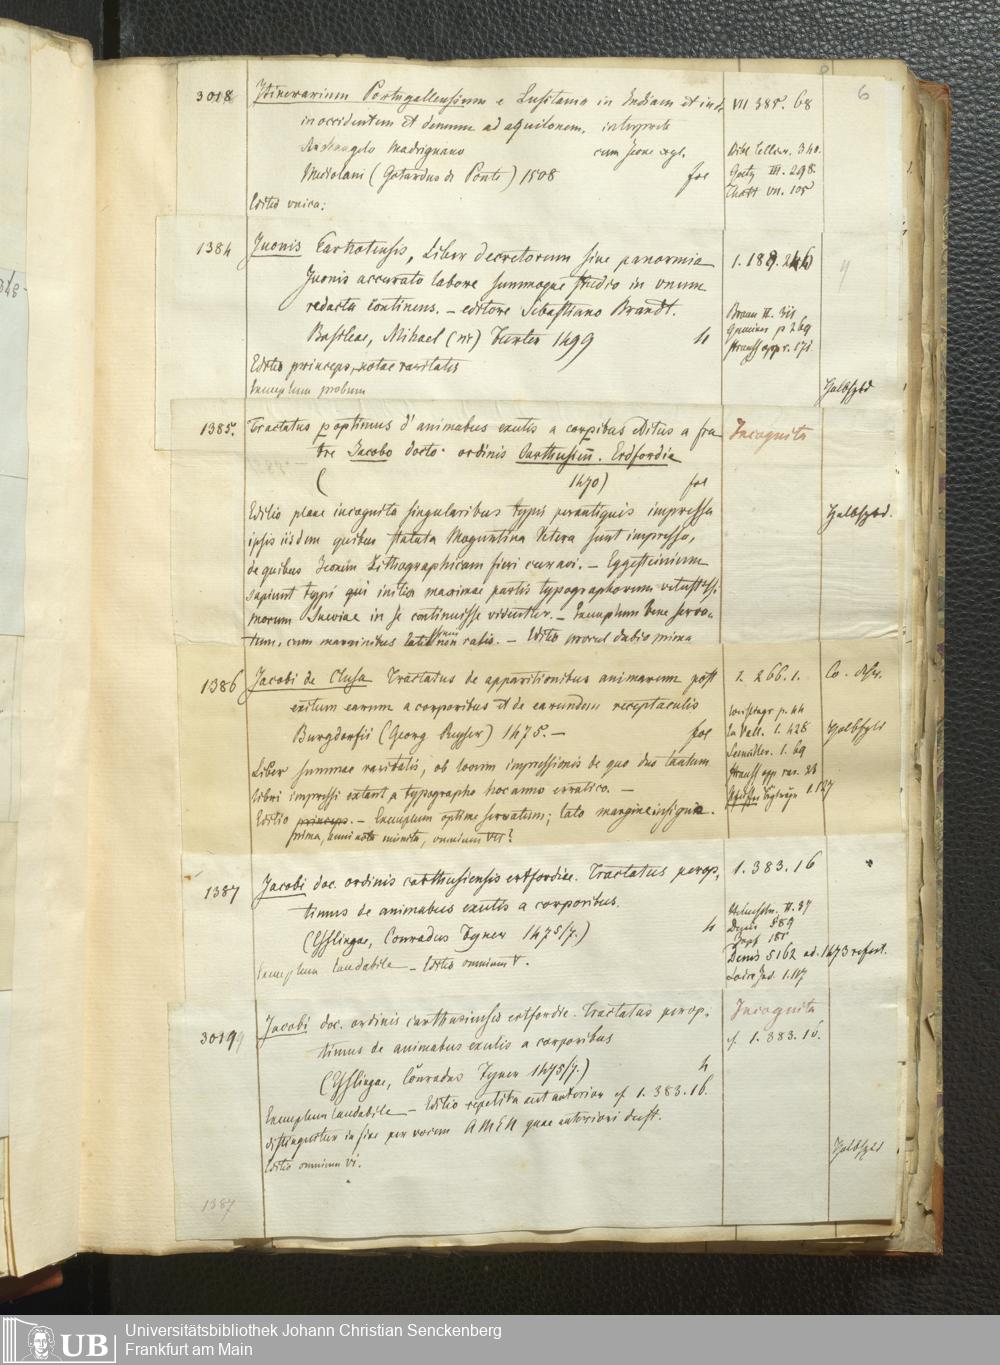 6
3018 Itinerarium Portugallensium e Lusitania in Indiam et inde VII 385. 68
in occidentem et demum ad aquilonem. interprete
Archangelo Madrignano cum
Mediolani ( 1508 fol
III. 298.
VII. 105
Editio unica:
1384 Juonis Carnotensis, Liber decretorum siue panormia 1. 189. 246
Juonis accurato labore summoque studio in vnum
redacta continens. – editore Sebastiano Brandt.
Basileae, Mihael (sic) Furter 1499 4
Braun II. 311
p 269
Strauss opp r. 171
Editio princeps, notae raritatis
Exemplum probum
Halbfzbd
1385. Tractatus poptimus d' animabus exutis a corpibus editus a fra Incognita
tre Jacobo docto. ordinis Carthusien. Erdfordia
( 1470) fol
Editio plane incognita singularibus typis perantiquis impressa Halbfzbd.
ipsis iisdem quibus statuta Moguntina Vetera sunt impressa,
de quibus Iconem Lithographicam fieri curavi. – Eggesteinium
sapiunt typi qui initia maximae partis typographorum vetustissi
morum Sueviae in se continuisse videntur. – Exemplum bene serva
tum, cum marginibus latis non rasis. – Editio procul dubio prima
1386 Jacobi de Clusa Tractatus de apparitionibus animarum post 2 266. 1.
exitum earum a corporibus et de earundem receptaculis
Burgdorfii (Georg Reyser) 1475. – fol
p. 44
La Vall. 1. 428
Seemiller. 1. 69
Strauss opp rar. 23
1. 127
Halbfzbd
Liber summae raritatis, ob locum impressionis de quo duo tantum
libri impressi extant a typographo hoc anno erratico. –
Editio princeps. – Exemplum optime servatum; lato margine insigne.
prima, anni nota munita, omnium VII?
1387 Jacobi doc. ordinis carthusiensis ertfordiae. Tractatus perop, 1. 383. 16
timus de animabus exutis a corporibus.
(Esslingae, Conradus Fyner 1475/7.) 4
II. 37
Denis 589
Zapf 185
Denis 5162 ad. 1473 refert.
1. 117
Exemplum laudabile – Editio omnium V.
3019 Jacobi doc. ordinis carthusiensis ertfordie. Tractatus perop. Incognita
timus de animabus exutis a corporibus cf. 1. 383. 16.
(Esslingae, Conradus Fyner 1475/7.) 4
Exemplum laudabile – Editio repetita aut anterior cf 1. 383. 16.
distinguitur in fine per vocem AMEN quae anteriori deest.
Editio omnium VI.
Halbfzbd
1387
UB
Universitätsbibliothek Johann Christian Senckenberg
Frankfurt am Main